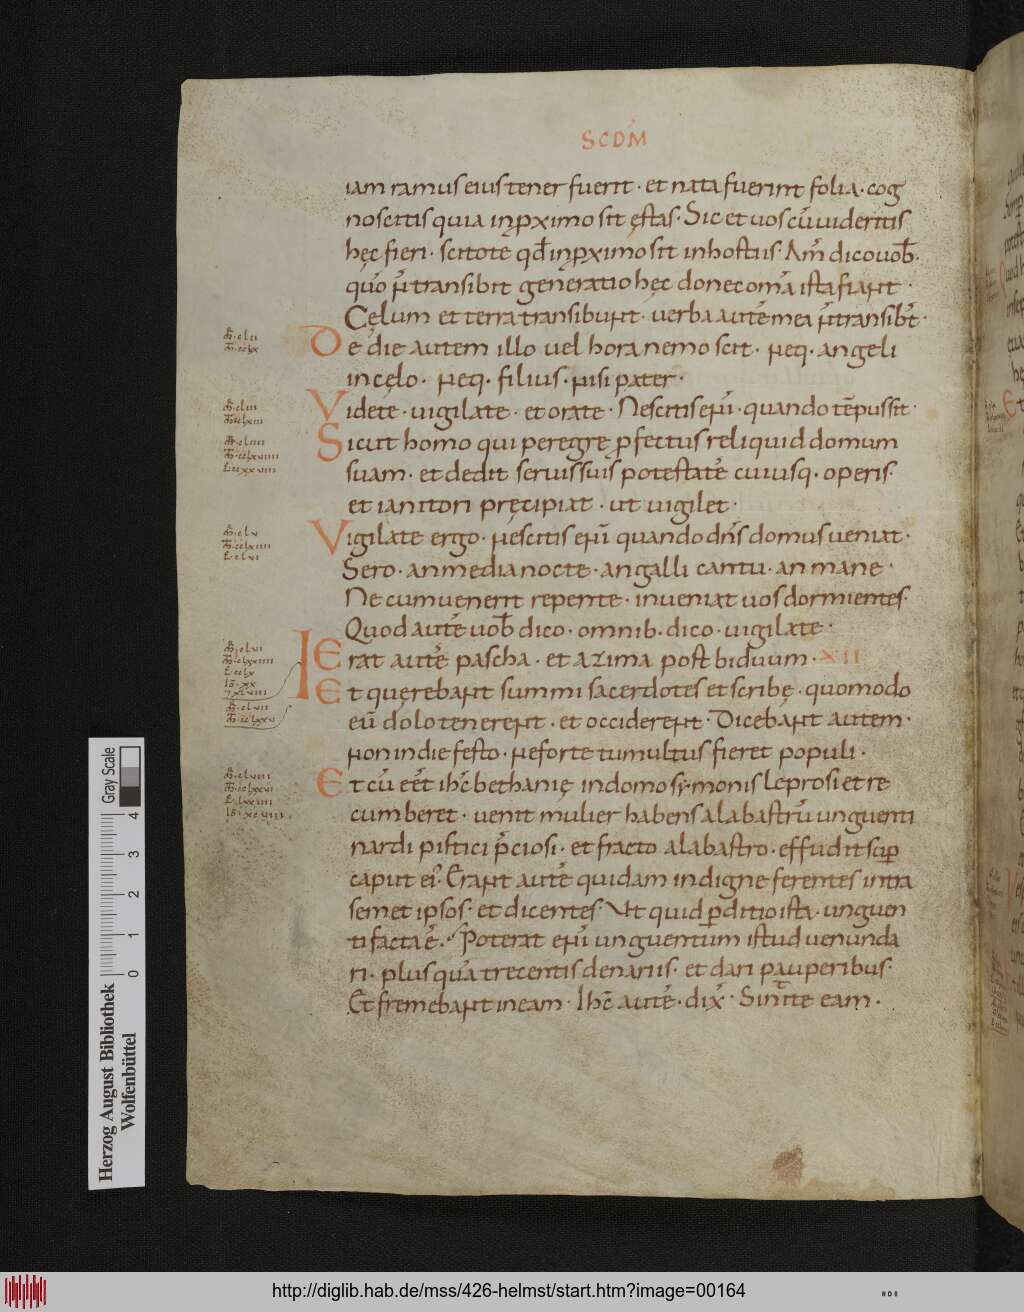 SCDM
iam ramus eius tener fuerit · et nata fuerint folia · cog
noscitis quia inꝓximo sit ęstas · Sic et uos cū uideritis
hęc fieri · scitote qđ inꝓximo sit inhostiis · Am̄ dico uob̄ ·
qūo n̄ transibit generatio hęc donec om̄a ista fiant ·
Cęlum et terra transibunt · uerba autē mea n̄ transibt̄ ·
De die autem illo uel hora nemo scit · neq· angeli
in cęlo · neq· filius · nisi pater ·
Videte · uigilate · et orate · Nescitis eni̅ · quando tēpus sit ·
Sicut homo qui peregre ꝓfectus reliquid domum
suam · et dedit seruis suis potestatē cuiusq· operis ·
et ianitori pręcipiat · ut uigilet ·
Vigilate ergo · nescitis eni̅ quando dn̄s domus ueniat ·
Sero · an media nocte · an galli cantu · an mane ·
Ne cum uenerit repente · inueniat uos dormientes ·
Quod autē uob̄ dico · omnib· dico · uigilate ·
Erat autē pascha · et azima post biduum · XII
Et quęrebant summi sacerdotes et scribę · quomodo
eū dolo tenerent · et occiderent · Dicebant autem ·
non in die festo · ne forte tumultus fieret populi ·
Et cū eēt ihc̄ bethanię in domo symonis leprosi et re
cumberet · uenit mulier habens alabastrū unguenti
nardi pistici p̄ciosi · et fracto alabastro · effudit sup̱
caput ei᾽ · Erant autē quidam indigne ferentes intra
semet ipsos · et dicentes · Ut quid ꝑditio ista · unguen
ti facta ē · Poterat eni̅ unguentum istud uenunda
ri · plus quā trecentis denariis · et dari pauperibus ·
Et fremebant in eam · Ihc̄ autē · dix̄ · Sinite eam ·
Gray Scale
4 3 2 1 0
Herzog August Bibliothek
Wolfenbüttel
http://diglib.hab.de/mss/426-helmst/start.htm?image=00164